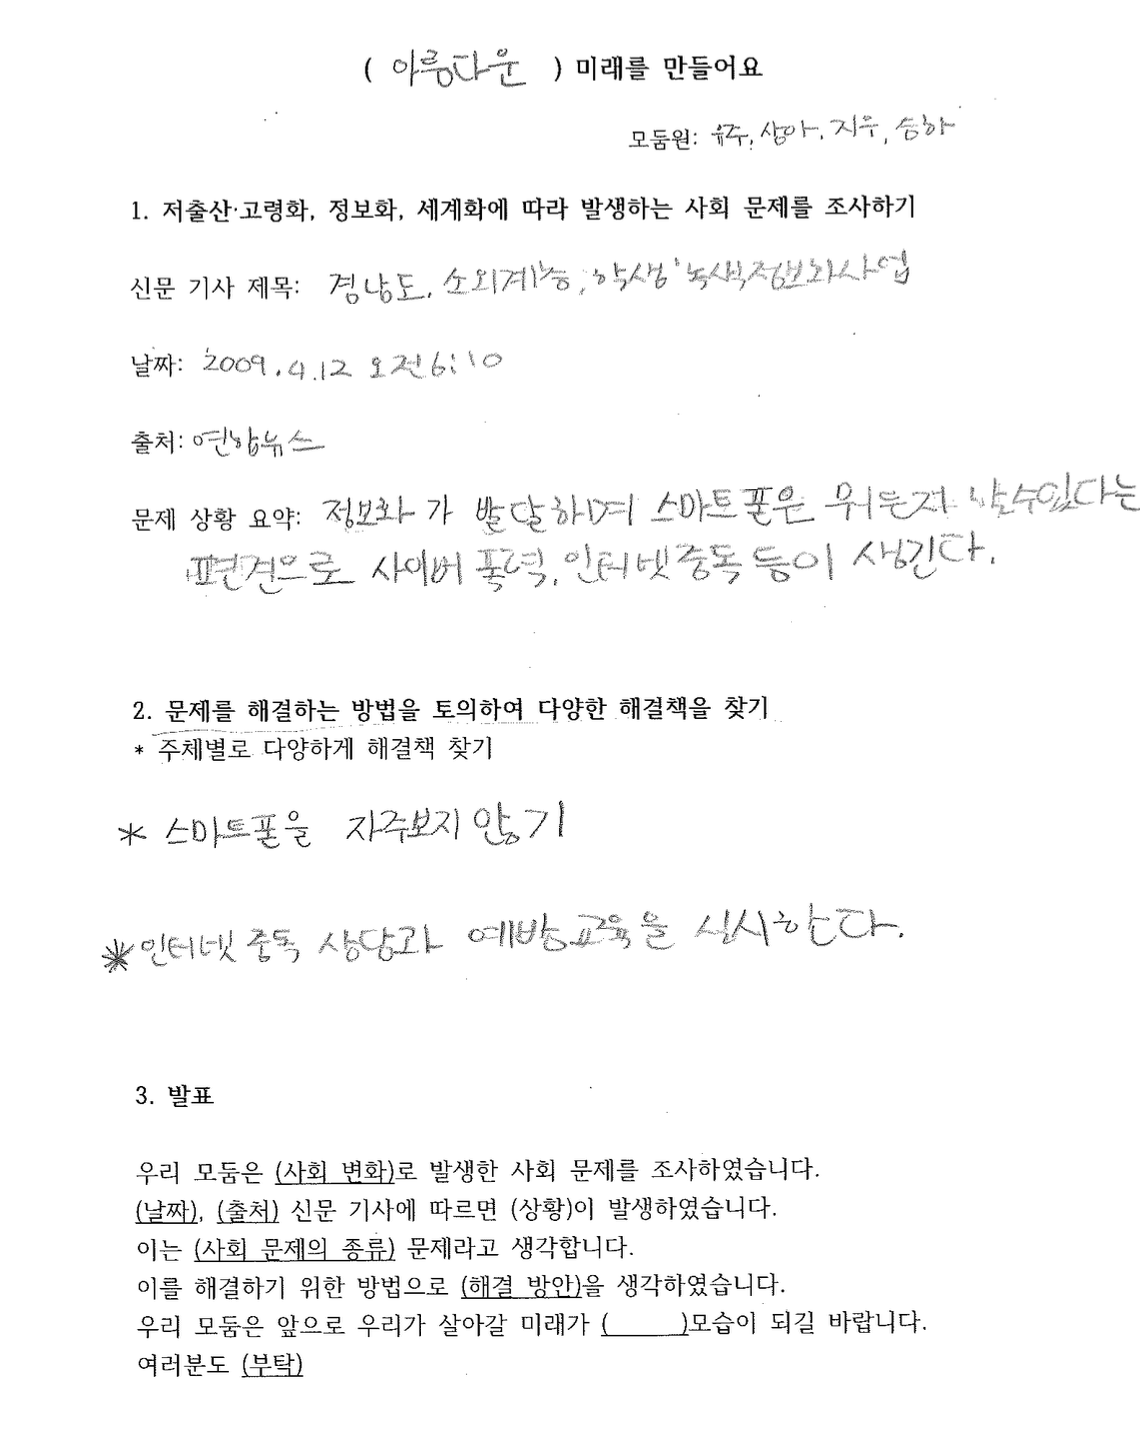 ( 아름다운 ) 미래를 만들어요
모둠원: 유주, 상아, 지우, 승하
1. 저출산·고령화, 정보화, 세계화에 따라 발생하는 사회 문제를 조사하기
신문 기사 제목: 경남도, 소외계층, 학생 '녹색정보화사업
날짜: 2009.4.12 오전6:10
출처: 연합뉴스
문제 상황 요약: 정보화가 발달하며 스마트폰은 뭐든지 할수있다는
편견으로 사이버 폭력, 인터넷 중독 등이 생긴다.
2. 문제를 해결하는 방법을 토의하여 다양한 해결책을 찾기
* 주체별로 다양하게 해결책 찾기
* 스마트폰을 자주보지 않기
* 인터넷 중독 상담과 예방교육을 실시한다.
3. 발표
우리 모둠은 (사회 변화)로 발생한 사회 문제를 조사하였습니다.
(날짜), (출처) 신문 기사에 따르면 (상황)이 발생하였습니다.
이는 (사회 문제의 종류) 문제라고 생각합니다.
이를 해결하기 위한 방법으로 (해결 방안)을 생각하였습니다.
우리 모둠은 앞으로 우리가 살아갈 미래가 (      )모습이 되길 바랍니다.
여러분도 (부탁)